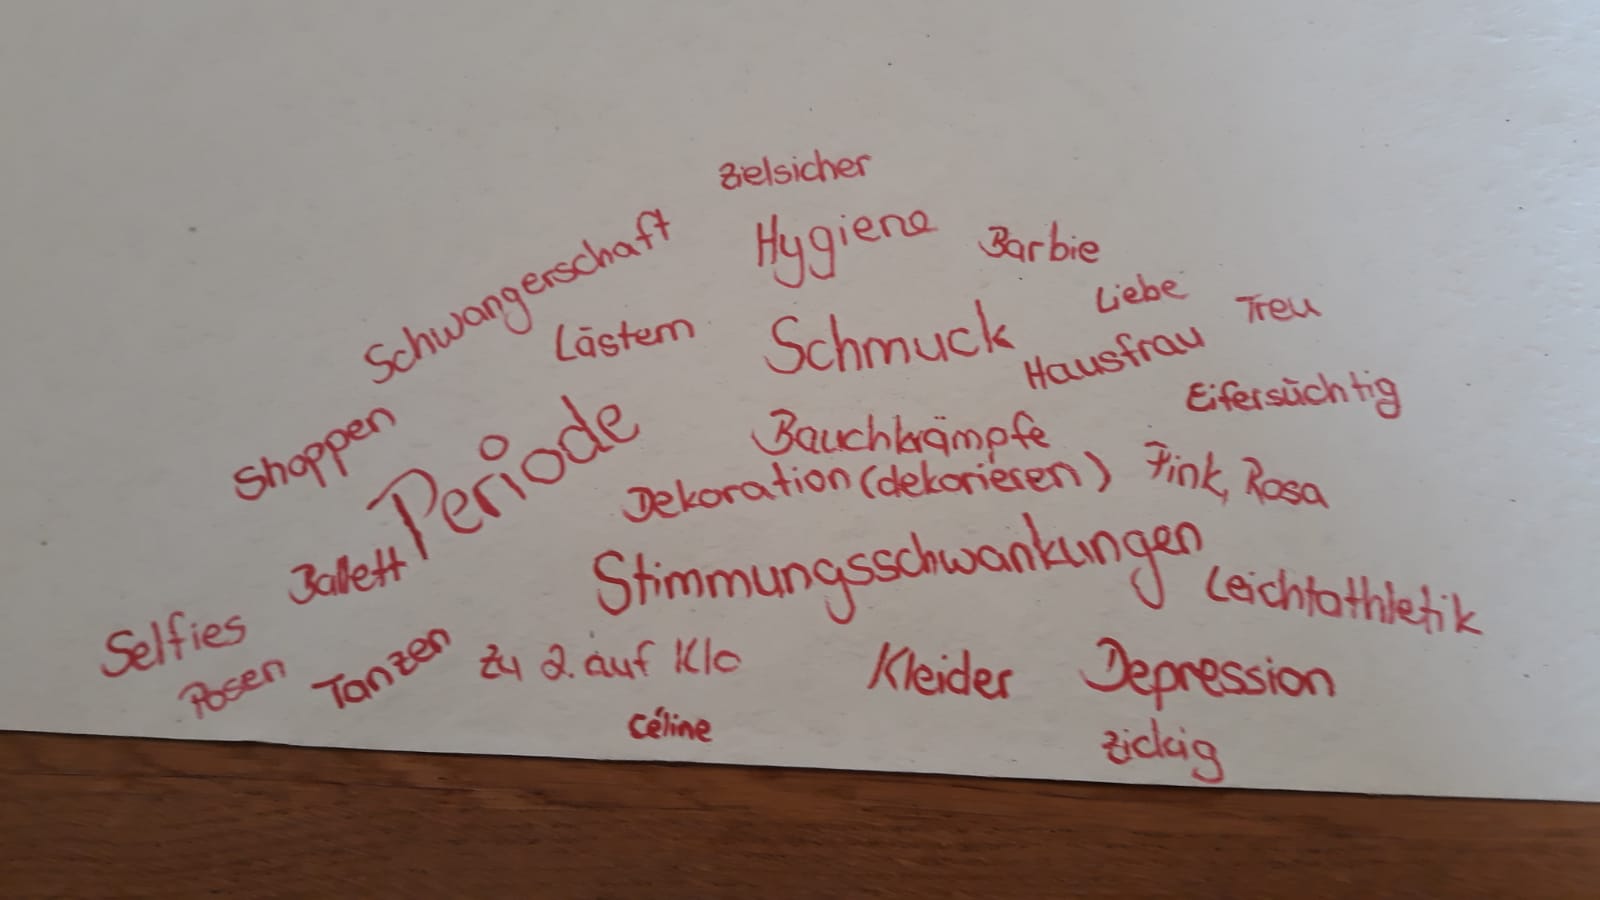 Zielsicher
Schwangerschaft
Hygiene
Barbie
Liebe
Treu
Lästern
Schmuck
Hausfrau
Eifersüchtig
Shoppen
Periode
Bauchkrämpfe
Dekoration (dekorieren)
Pink, Rosa
Ballett
Stimmungsschwankungen
Leichtathletik
Selfies
Posen
Tanzen
zu 2. auf Klo
Kleider
Depression
Céline
zickig